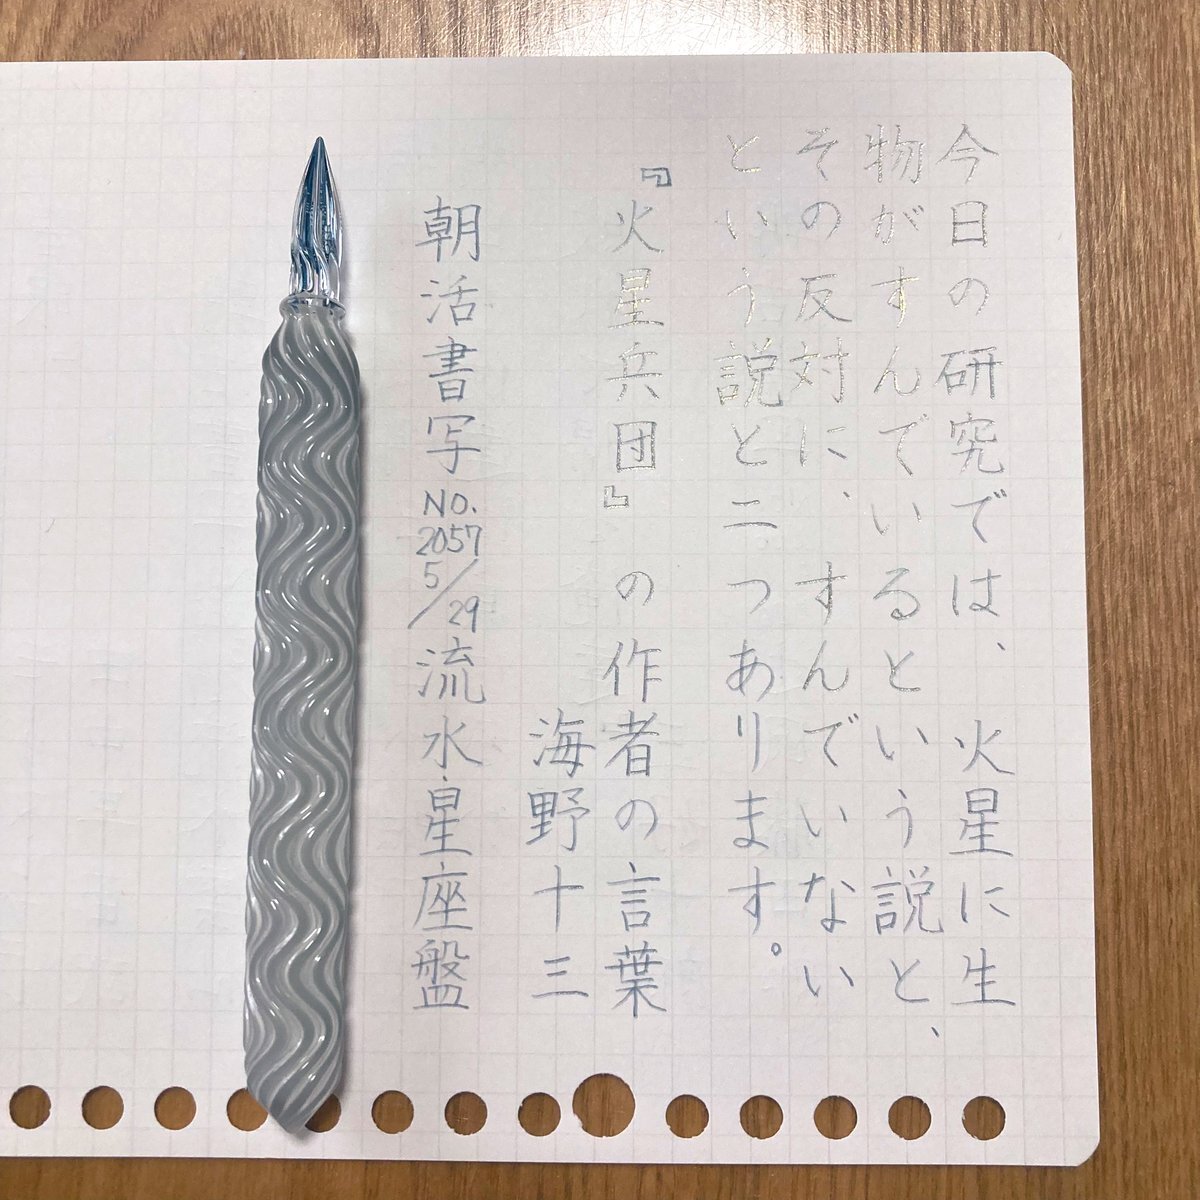 今日の研究では、火星に生
物がすんでいるという説と、
その反対に、すんでいない
という説と二つあります。
『火星兵団』の作者の言葉
海野十三
朝活書写 NO. 2057 5/29 流水星座盤